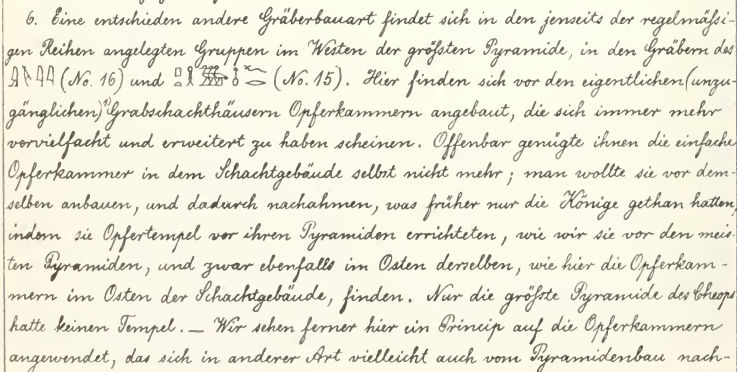 6. Eine entschieden andere Gräberbauart findet sich in den jenseits der regelmäßi-
gen Reihen angelegten Gruppen im Westen der größten Pyramide, in den Gräbern des
(No. 16) und (No. 15). Hier finden sich vor den eigentlichen (unzu-
gänglichen) Grabschachthäusern Opferkammern angebaut, die sich immer mehr
vervielfacht und erweitert zu haben scheinen. Offenbar genügte ihnen die einfache
Opferkammer in dem Schachtgebäude selbst nicht mehr; man wollte sie vor dem-
selben anbauen, und dadurch nachahmen, was früher nur die Könige gethan hatten,
indem sie Opfertempel vor ihren Pyramiden errichteten, wie wir sie vor den meis-
ten Pyramiden, und zwar ebenfalls im Osten derselben, wie hier die Opferkam-
mern im Osten der Schachtgebäude, finden. Nur die größte Pyramide des Cheops
hatte keinen Tempel. — Wir sehen ferner hier ein Princip auf die Opferkammern
angewendet, das sich in anderer Art vielleicht auch vom Pyramidenbau nach-